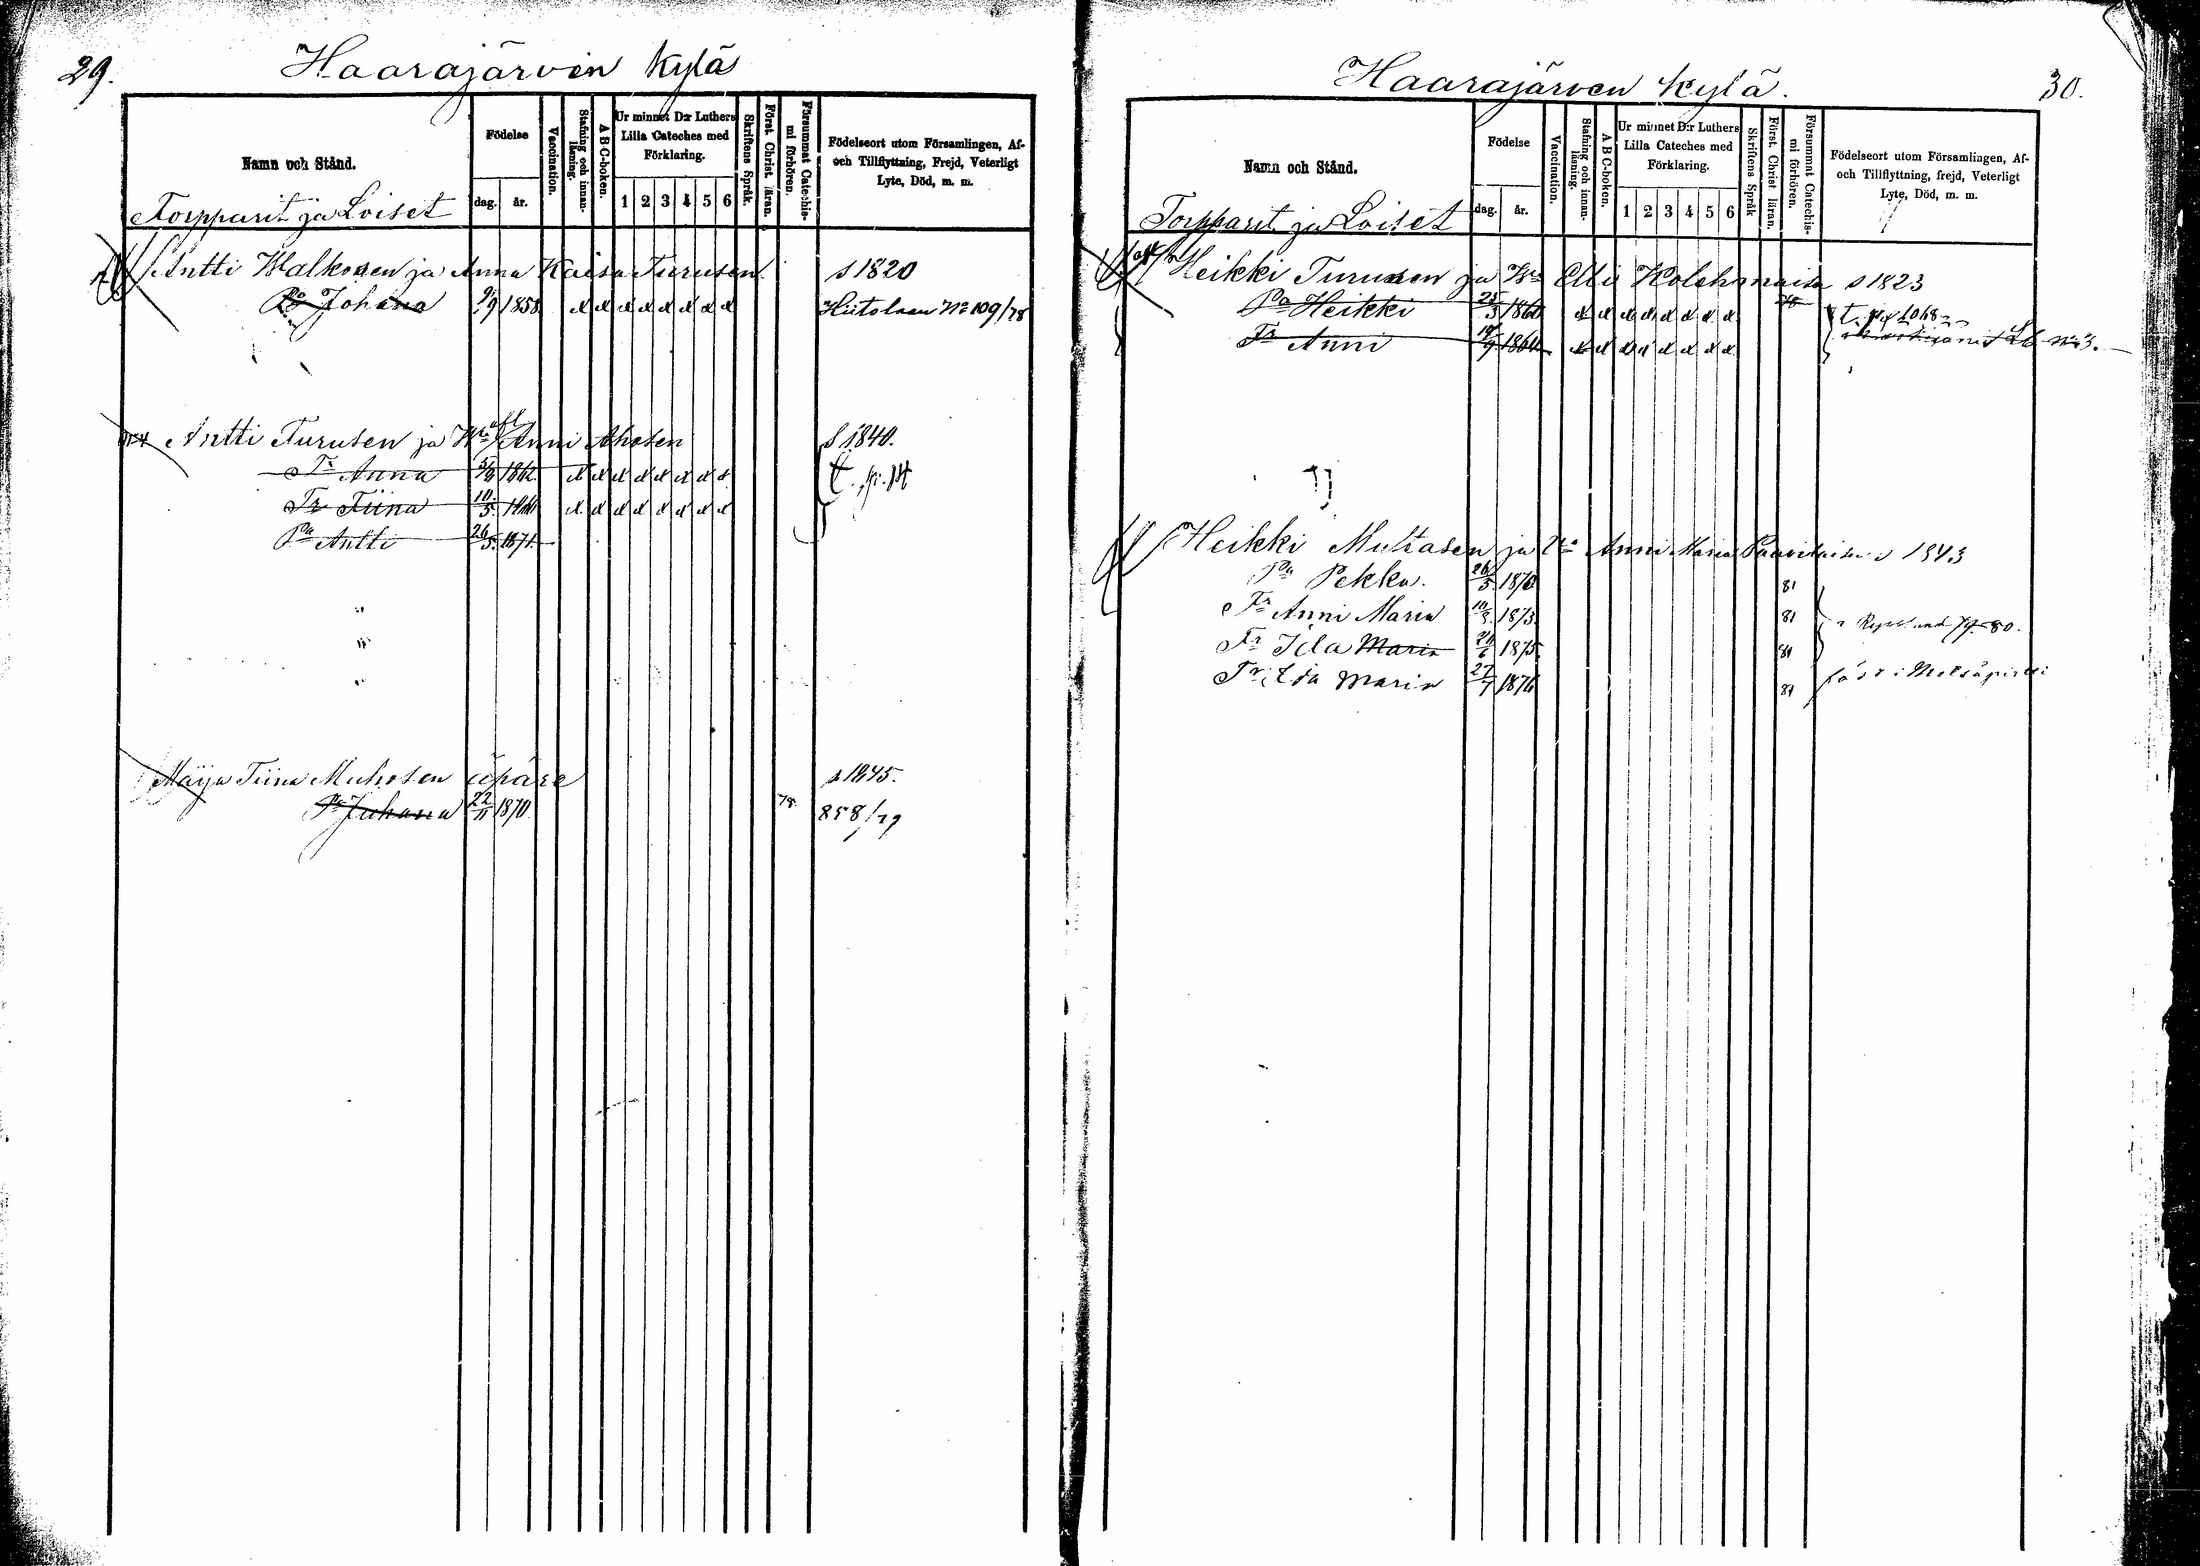 29.
Haarajärven kylä
Namn och Stånd.
Födelse
dag.
år.
Vaccination.
Stafning och innan-läsning.
A B C-boken.
Ur minnet D:r Luthers
Lilla Cateches med
Förklaring.
1 2 3 4 5 6
Skriftens Språk.
Först. Christ. läran.
Försummat Catechis-mi förhören.
Födelseort utom Församlingen, Af-
och Tillflyttning, Frejd, Veterligt
Lyte, Död, m. m.
Torpparit ja Loiset
Antti Malkosen ja Anna Kaisa Turusen s 1820
Pa Johana 9/9 1858 Hiitolaan No 109/78
Antti Turusen ja Wa Anni Ahosen s 1840.
Tr Anna 1862
Tr Tiina 10/5
Pa Antti 26/5 1871
Maija Tiina Muhosen äpäre s 1845.
Pa Juhana 22/11 1870. 78. 858/79
Haarajärven kylä.
30.
Namn och Stånd.
Födelse
dag.
år.
Vaccination.
Stafning och innan-läsning.
A B C-boken.
Ur minnet D:r Luthers
Lilla Cateches med
Förklaring.
1 2 3 4 5 6
Skriftens Språk
Först. Christ. läran.
Försummat Catechis-mi förhören.
Födelseort utom Församlingen, Af-
och Tillflyttning, frejd, Veterligt
Lyte, Död, m. m.
Torpparit ja Loiset
Heikki Turusen ja Wa Elli Kolehmaisen s 1823
Pa Heikki 25/3 1860
Tr Anni 1864 No 3.
Heikki Multasen ja Wa Anni Maria Paavilaisen s 1843
Pa Pekka. 26/5 1870 81
Tr Anni Maria 1873 81 79-80.
Tr Ida Maria 1875 81
Tr Ida Maria 27/7 1876 81